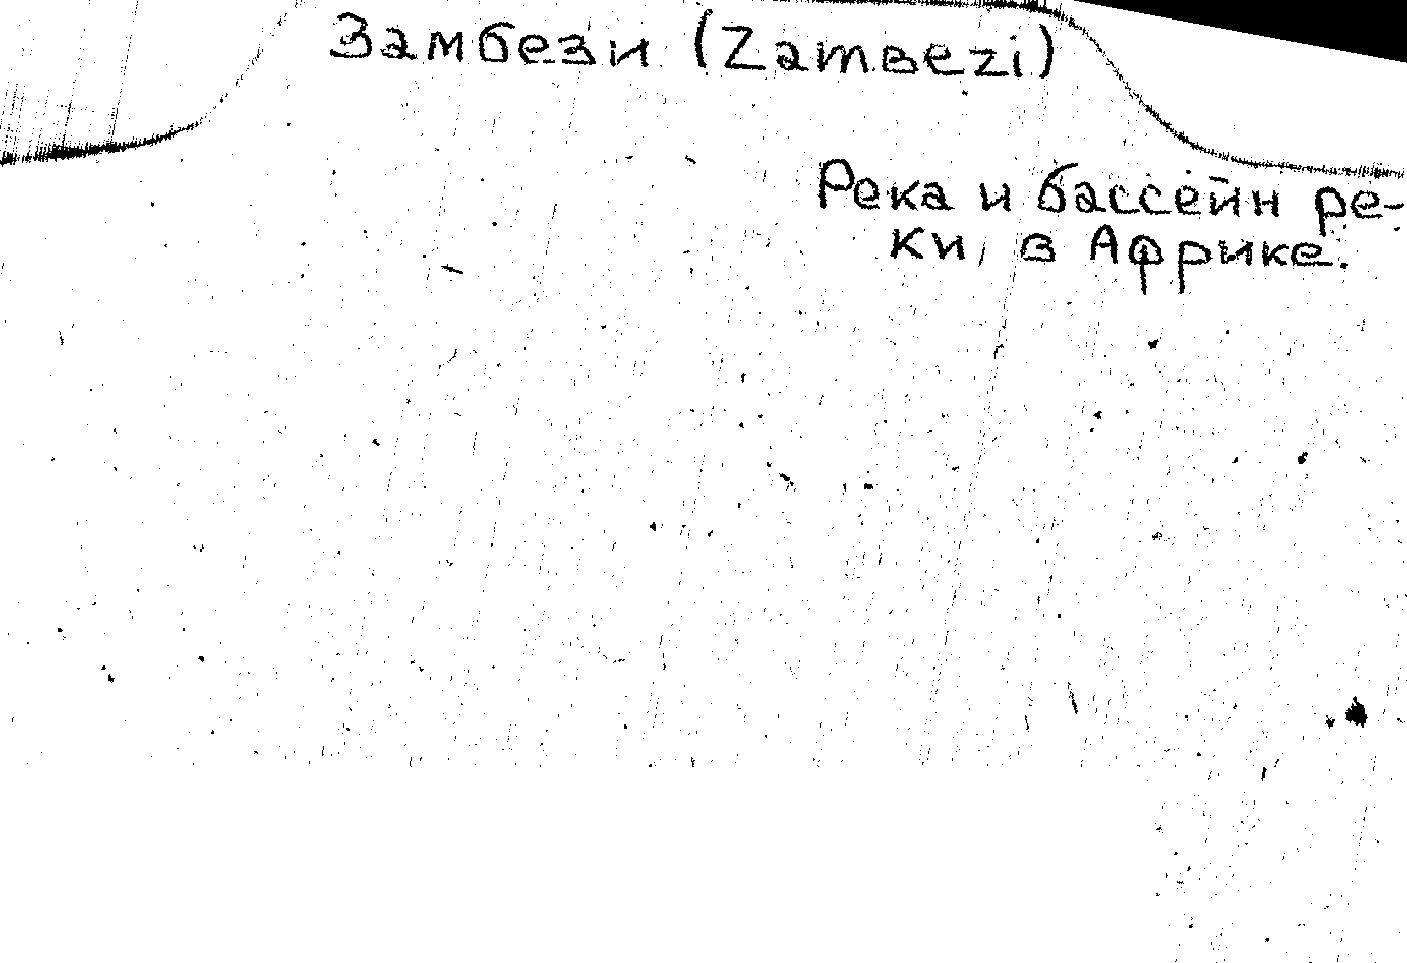 Замбези (Zamвezi)
Река и бассейн ре-
ки, в Африке.